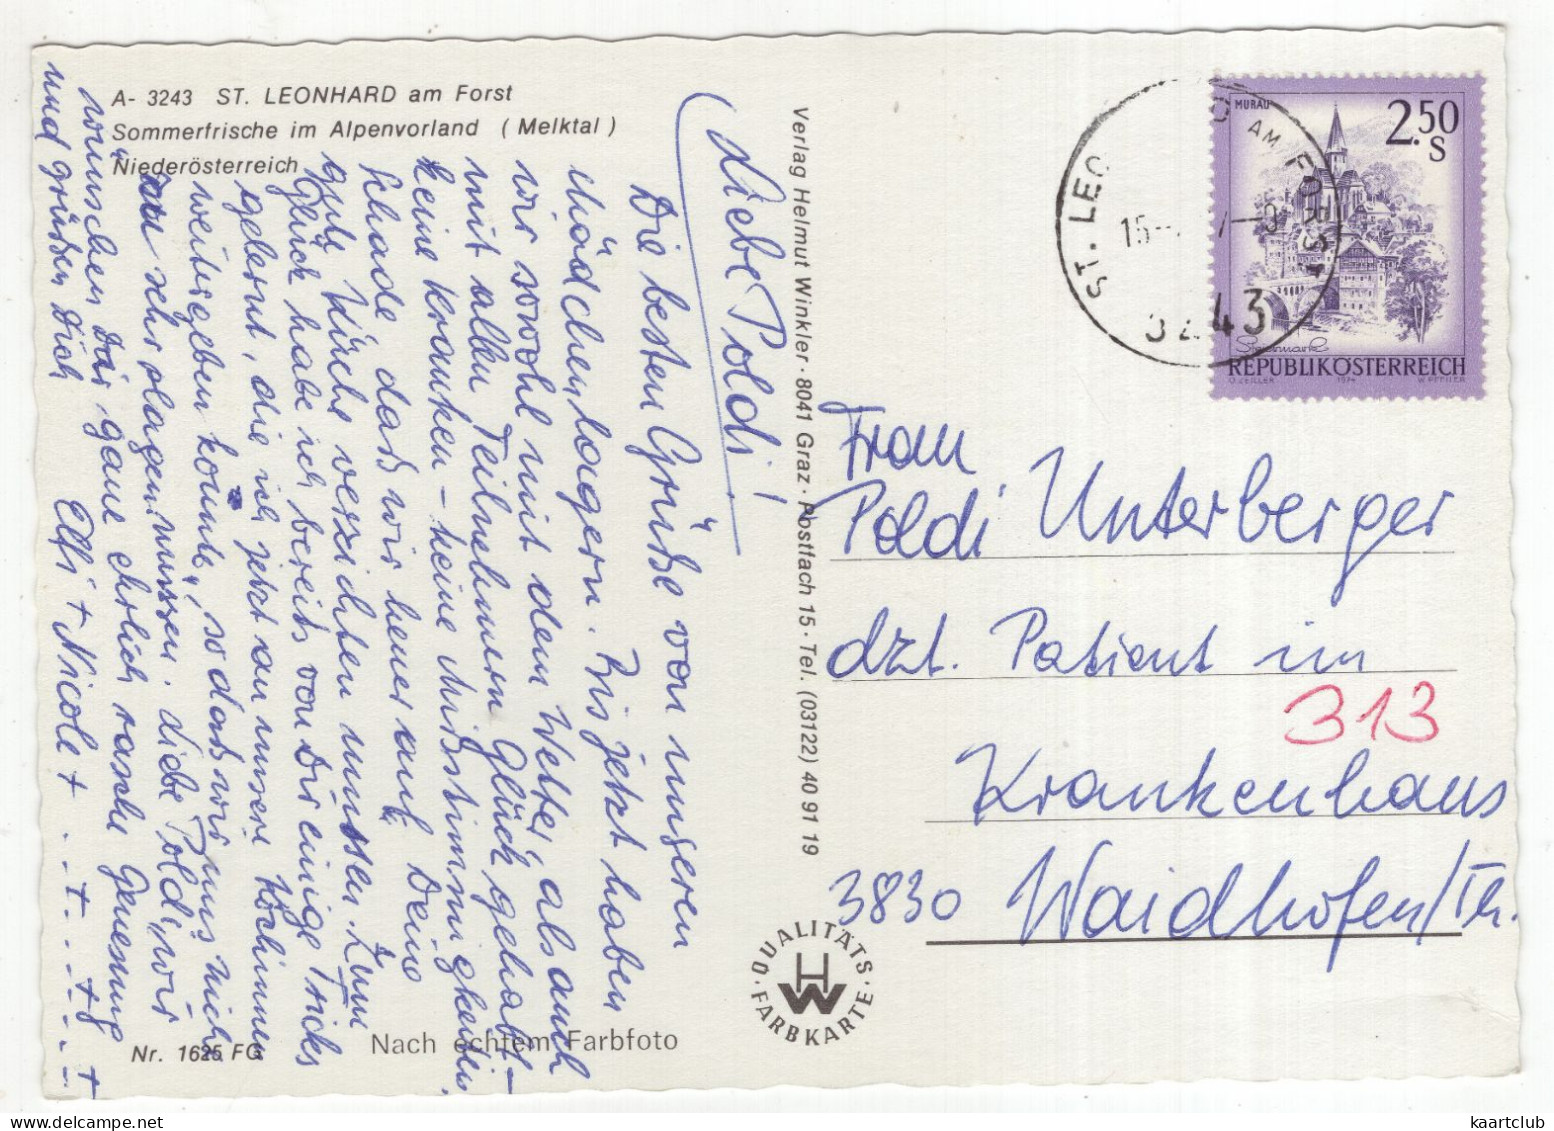 A- 3243 ST. LEONHARD am Forst
Sommerfrische im Alpenvorland ( Melktal )
Niederösterreich
Liebe Poldi!
Die besten Grüße von unseren
Mädchenlagern. Bis jetzt haben
wir sowohl mit dem Wetter, als auch
mit allen Teilnehmern Glück gehabt –
keine kranken – keine Mißstimmigkeiten.
Schade daß wir heuer auf Deine
gute Küche verzichten müssen. Zum
Glück habe ich bereits von Dir einige Tricks
gelernt, die ich jetzt an unsere Köchinnen
weitergeben konnte, so daß wir uns nicht
sehr plagen müssen. Liebe Poldi, wir
wünschen Dir ganz ehrlich rasche Genesung
und grüßen Dich Elfi + Nicole +
Nr. 1625 FG
Nach echtem Farbfoto
Verlag Helmut Winkler · 8041 Graz · Postfach 15 · Tel. (03122) 40 91 19
QUALITÄTS
HW
FARBKARTE
ST. LEO
AM FORST
15
3243
MURAU
2.50
S
Steiermark
REPUBLIK ÖSTERREICH
O. ZEILLER 1974 W. PFEILER
Frau
Poldi Unterberger
dzt. Patient im
313
Krankenhaus
3830 Waidhofen/Th.